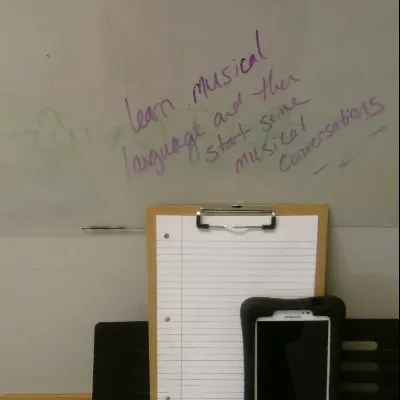 learn musical
language and then
start some
musical
conversations
SAMSUNG